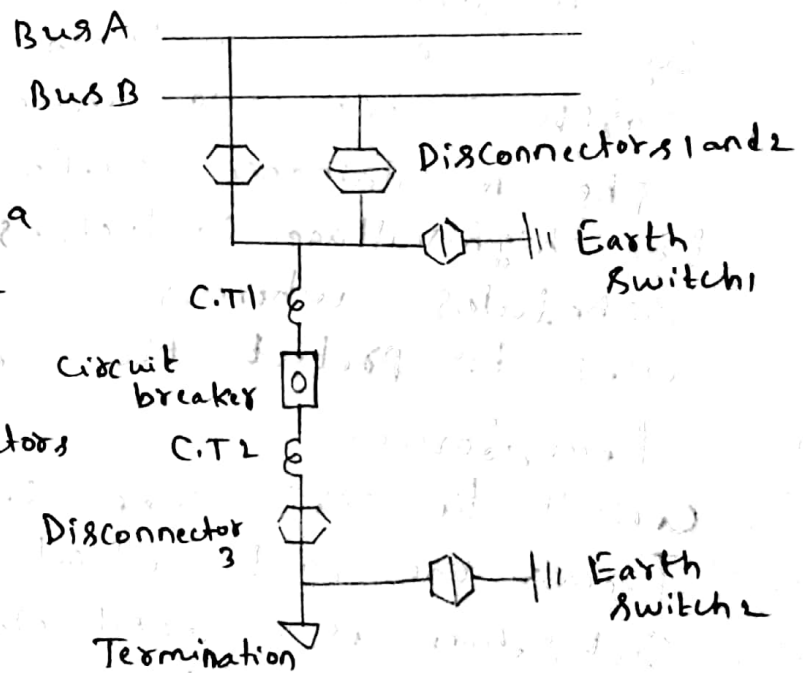 Bus A
Bus B
Disconnectors 1 and 2
a
Earth
Switch1
C.T1
Circuit
breaker
tors
C.T2
Disconnector
3
Earth
Switch 2
Termination